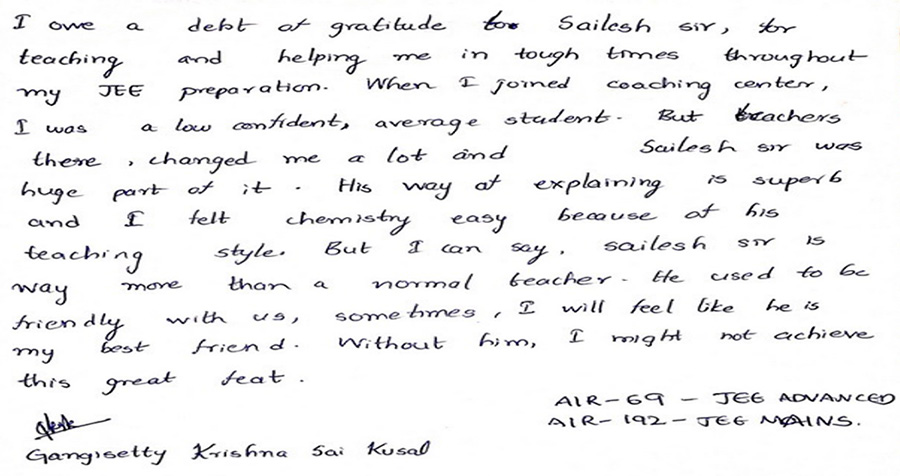 I owe a debt of gratitude to Sailesh sir, for
teaching and helping me in tough times throughout
my JEE preparation. When I joined coaching center,
I was a low confident, average student. But teachers
there, changed me a lot and Sailesh sir was
huge part of it. His way of explaining is superb
and I felt chemistry easy because of his
teaching style. But I can say, sailesh sir is
way more than a normal teacher. He used to be
friendly with us, sometimes, I will feel like he is
my best friend. Without him, I might not achieve
this great feat.
AIR-69 - JEE ADVANCED
AIR-192-JEE MAINS.
Gangisetty Krishna Sai Kusal